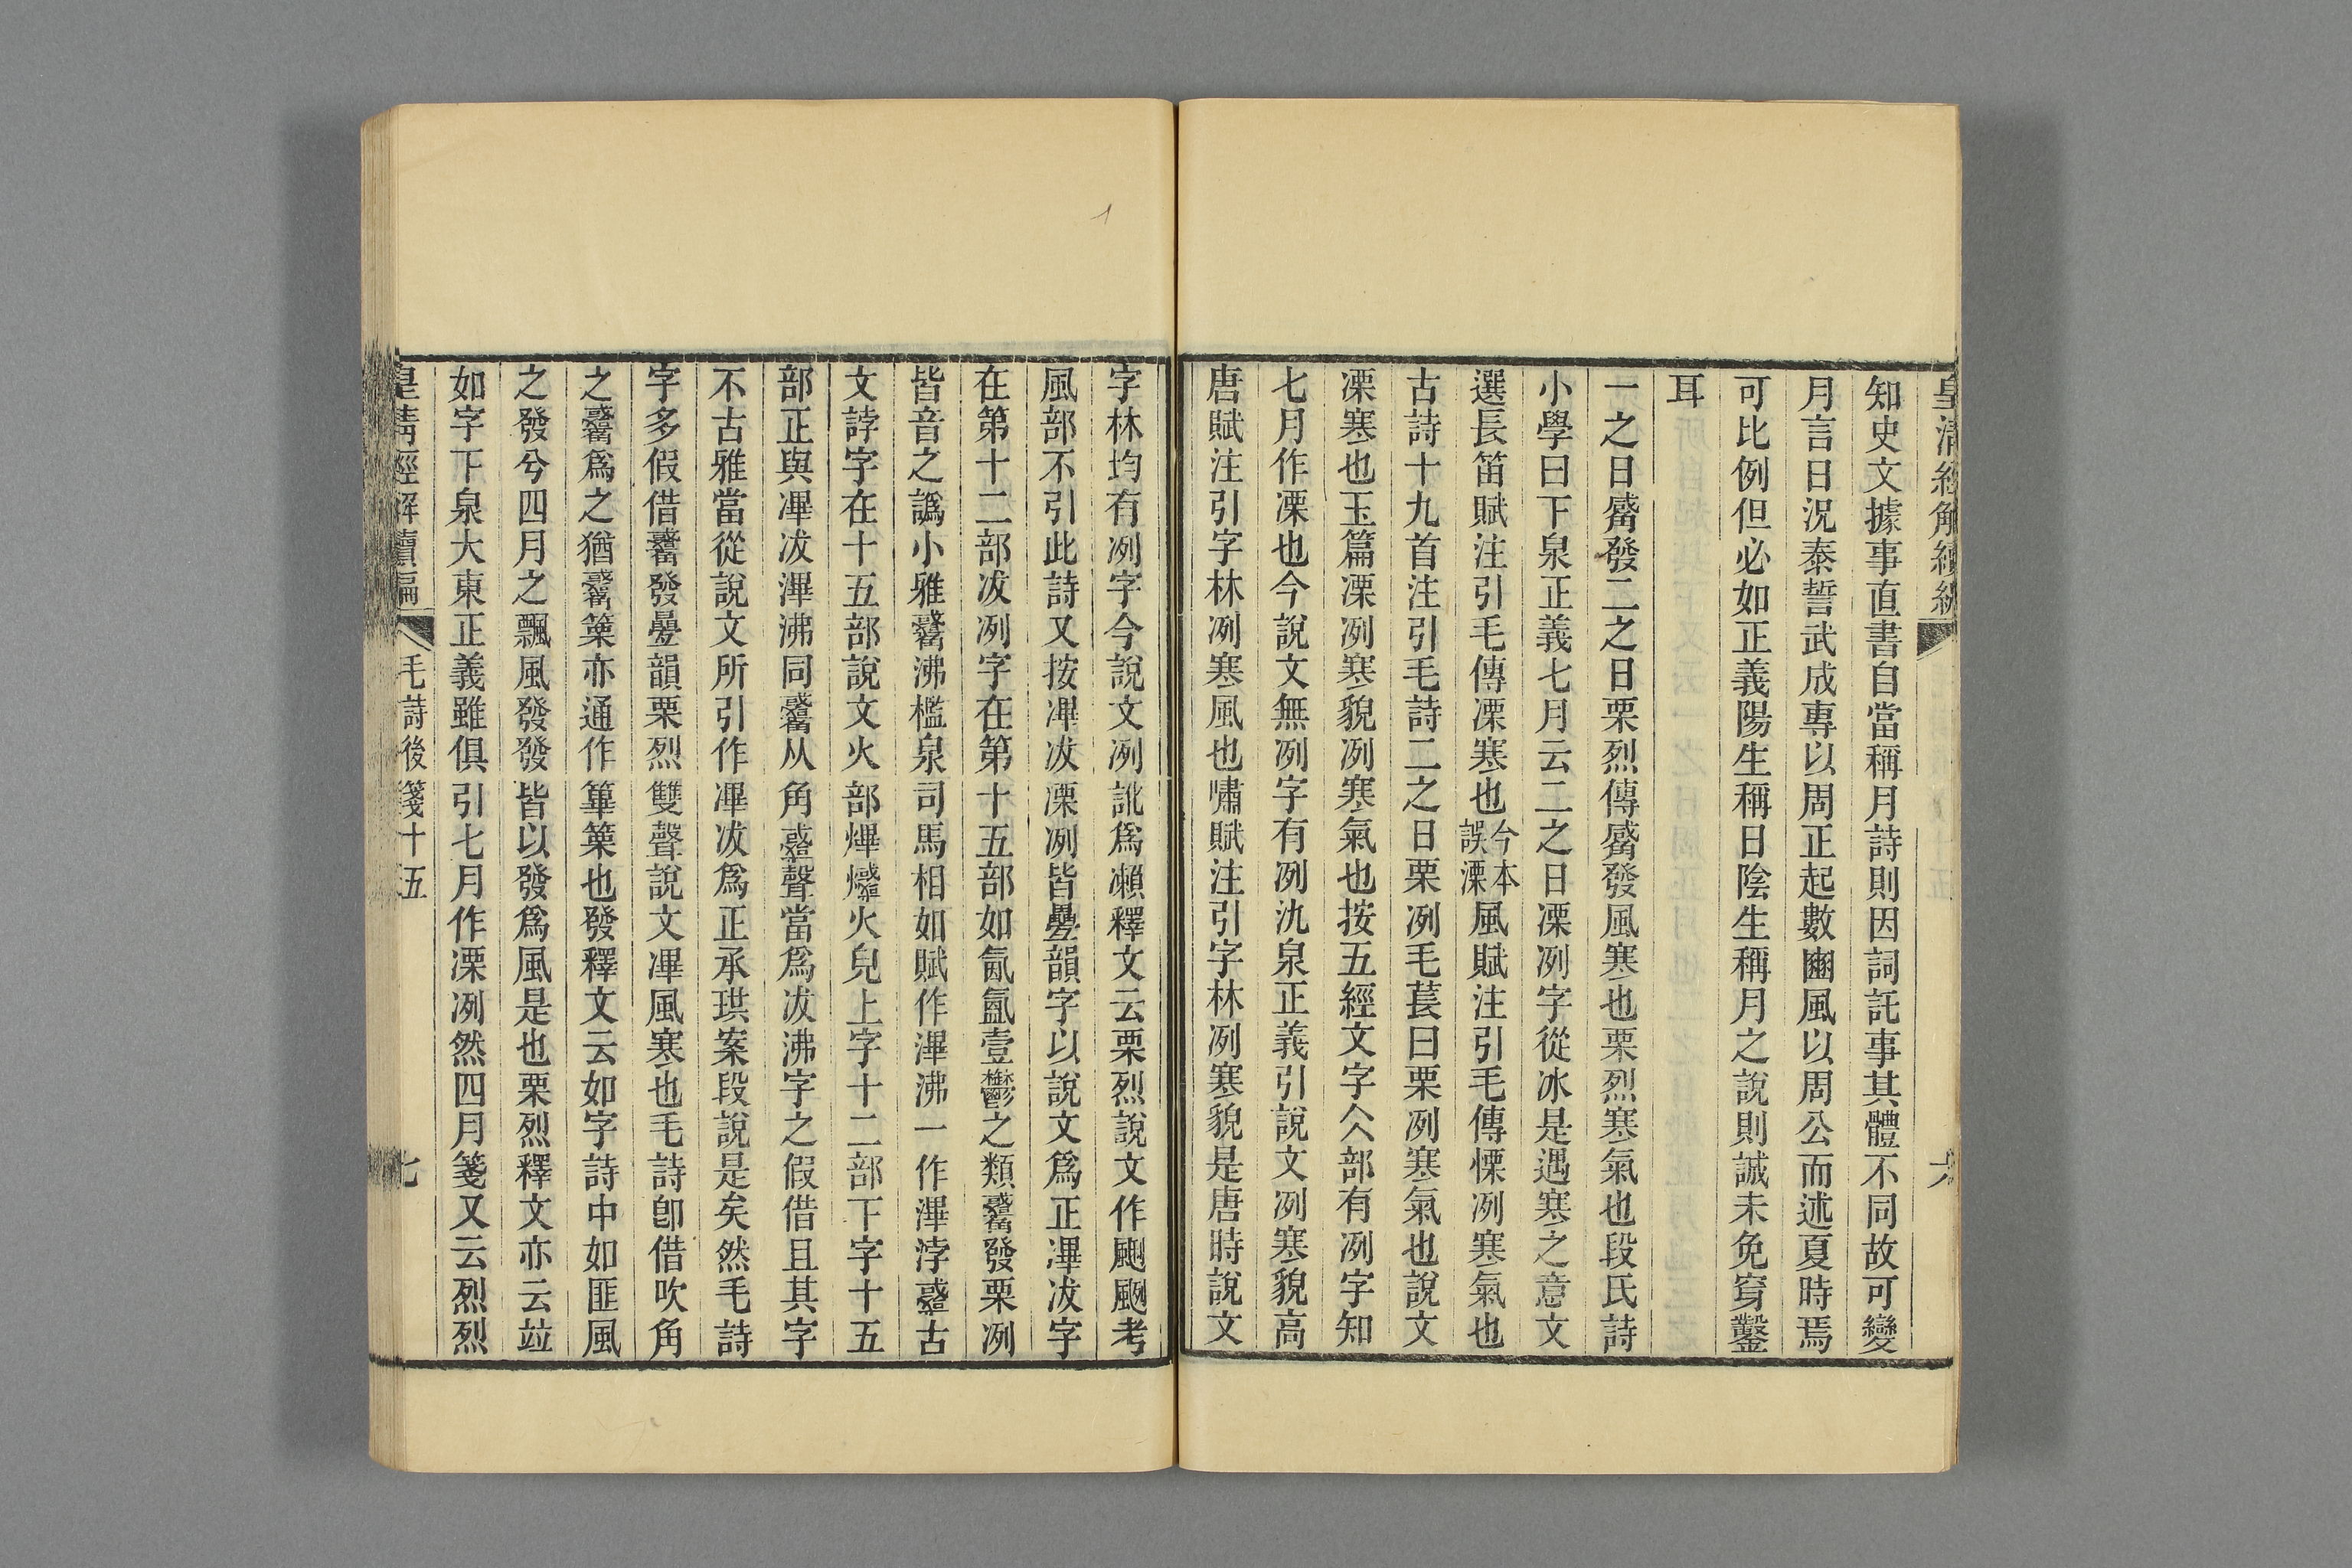 皇清經解續編
六
知史文據事直書自當稱月詩則因詞託事其體不同故可變
月言日況泰誓武成專以周正起數豳風以周公而述夏時焉
可比例但必如正義陽生稱日陰生稱月之說則誠未免穿鑿
耳
一之日觱發二之日栗烈傳觱發風寒也栗烈寒氣也段氏詩
小學曰下泉正義七月云二之日凓冽字從冰是遇寒之意文
選長笛賦注引毛傳凓寒也今本誤溧風賦注引毛傳慄冽寒氣也
古詩十九首注引毛詩二之日栗冽毛萇曰栗冽寒氣也說文
凓寒也玉篇凓冽寒貌冽寒氣也按五經文字仌部有冽字知
七月作凓也今說文無冽字有冽氿泉正義引說文冽寒貌高
唐賦注引字林冽寒風也嘯賦注引字林冽寒貌是唐時說文
字林均有冽字今說文冽訛爲瀨釋文云栗烈說文作颲颲考
風部不引此詩又按滭冹凓冽皆疊韻字以說文爲正滭冹字
在第十二部冹冽字在第十五部如氤氳壹鬱之類觱發栗冽
皆音之譌小雅觱沸檻泉司馬相如賦作滭沸一作滭浡古
文誖字在十五部說文火部熚㷸火皃上字十二部下字十五
部正與滭冹滭沸同觱从角聲當爲冹沸字之假借且其字
不古雅當從說文所引作滭冹爲正承珙案段說是矣然毛詩
字多假借觱發疊韻栗烈雙聲說文滭風寒也毛詩卽借吹角
之觱爲之猶觱篥亦通作篳篥也發釋文云如字詩中如匪風
之發兮四月之飄風發發皆以發爲風是也栗烈釋文亦云竝
如字下泉大東正義雖俱引七月作凓冽然四月箋又云烈烈
皇淸經解續編
毛詩後箋十五
七